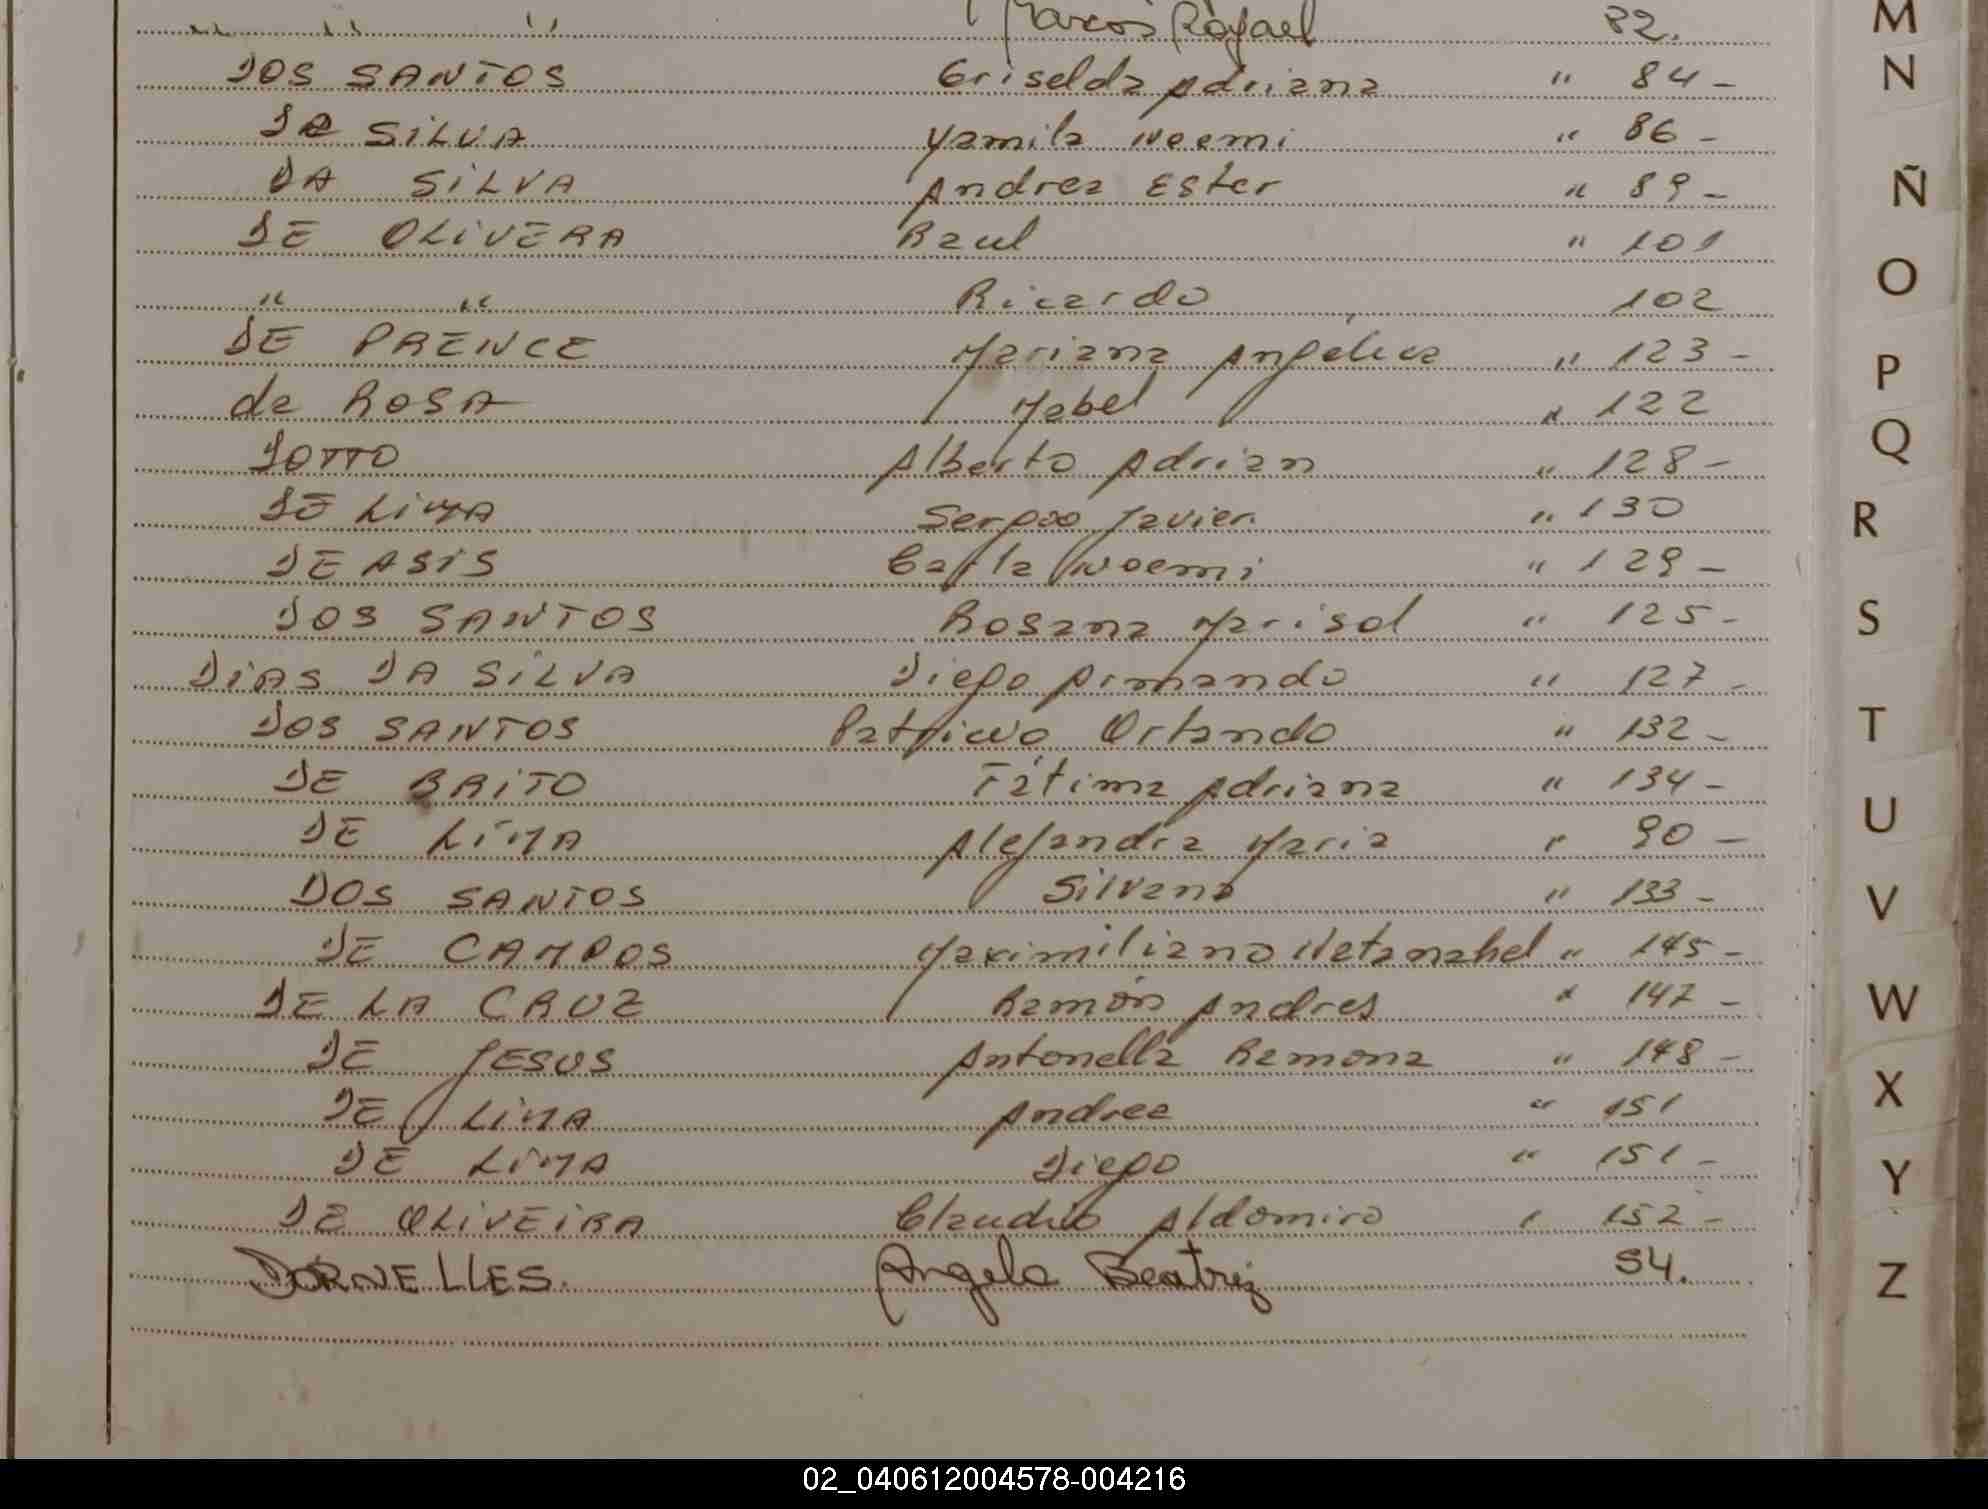 " " Marcos Rafael 82.
DOS SANTOS Griselda Adriana " 84 -
Da SILVA Yamila Noemi " 86 -
DA SILVA Andrea Ester " 89 -
DE OLIVERA Raul " 101
" " Ricardo 102
DE PRENCE Mariana Angélica " 123 -
da ROSA Mabel " 122
DOTTO Alberto Adrian " 128 -
DE LIMA Sergio Javier " 130
DE ASIS Carla Noemi " 129 -
DOS SANTOS Rosana Marisol " 125 -
DIAS DA SILVA Diego Armando " 127 -
DOS SANTOS Patricio Orlando " 132 -
DE BRITO Fátima Adriana " 134 -
DE LIMA Alejandra Maria " 90 -
DOS SANTOS Silvana " 133 -
DE CAMPOS Maximiliano Natanahel " 145 -
DE LA CRUZ Ramón Andres " 147 -
DE JESUS Antonella Ramona " 148 -
DE LIMA Andrea " 151
DE LIMA Diego " 151 -
DE OLIVEIRA Claudio Aldomiro " 152 -
DORNELLES. Angela Beatriz 54.
M
N
Ñ
O
P
Q
R
S
T
U
V
W
X
Y
Z
02_040612004578-004216